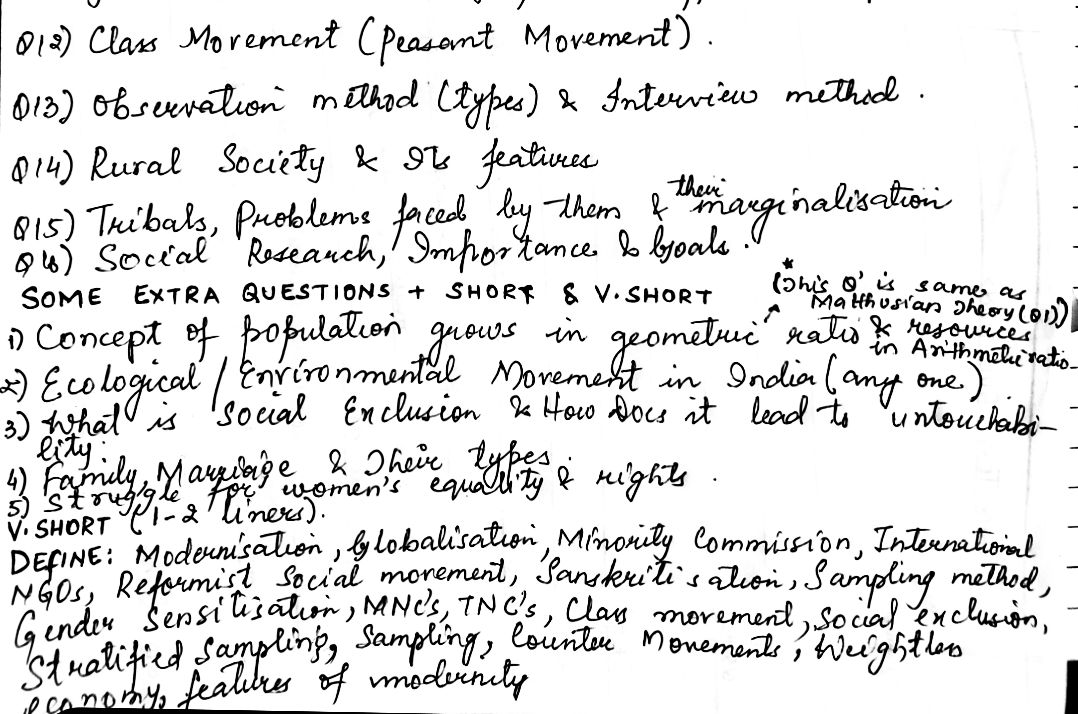 Q12) Class Movement (Peasant Movement).
Q13) Observation method (types) & Interview method.
Q14) Rural Society & Its features
Q15) Tribals, Problems faced by them & their marginalisation
Q16) Social Research, Importance & Goals.
SOME EXTRA QUESTIONS + SHORT & V.SHORT
* (This Q' is same as Malthusian Theory (Q1))
1) Concept of population grows in geometric ratio & resources in Arithmetic ratio.
2) Ecological / Environmental Movement in India (any one)
3) What is Social Exclusion & How Does it lead to untouchabi-
lity.
4) Family, Marriage & Their types.
5) Struggle for women's equality & rights.
V.SHORT (1-2 liners).
DEFINE: Modernisation, Globalisation, Minority Commission, International
NGOs, Reformist Social movement, Sanskritisation, Sampling method,
Gender Sensitisation, MNC's, TNC's, Class movement, Social exclusion,
Stratified Sampling, Sampling, Counter Movements, Weightless
economy, features of modernity